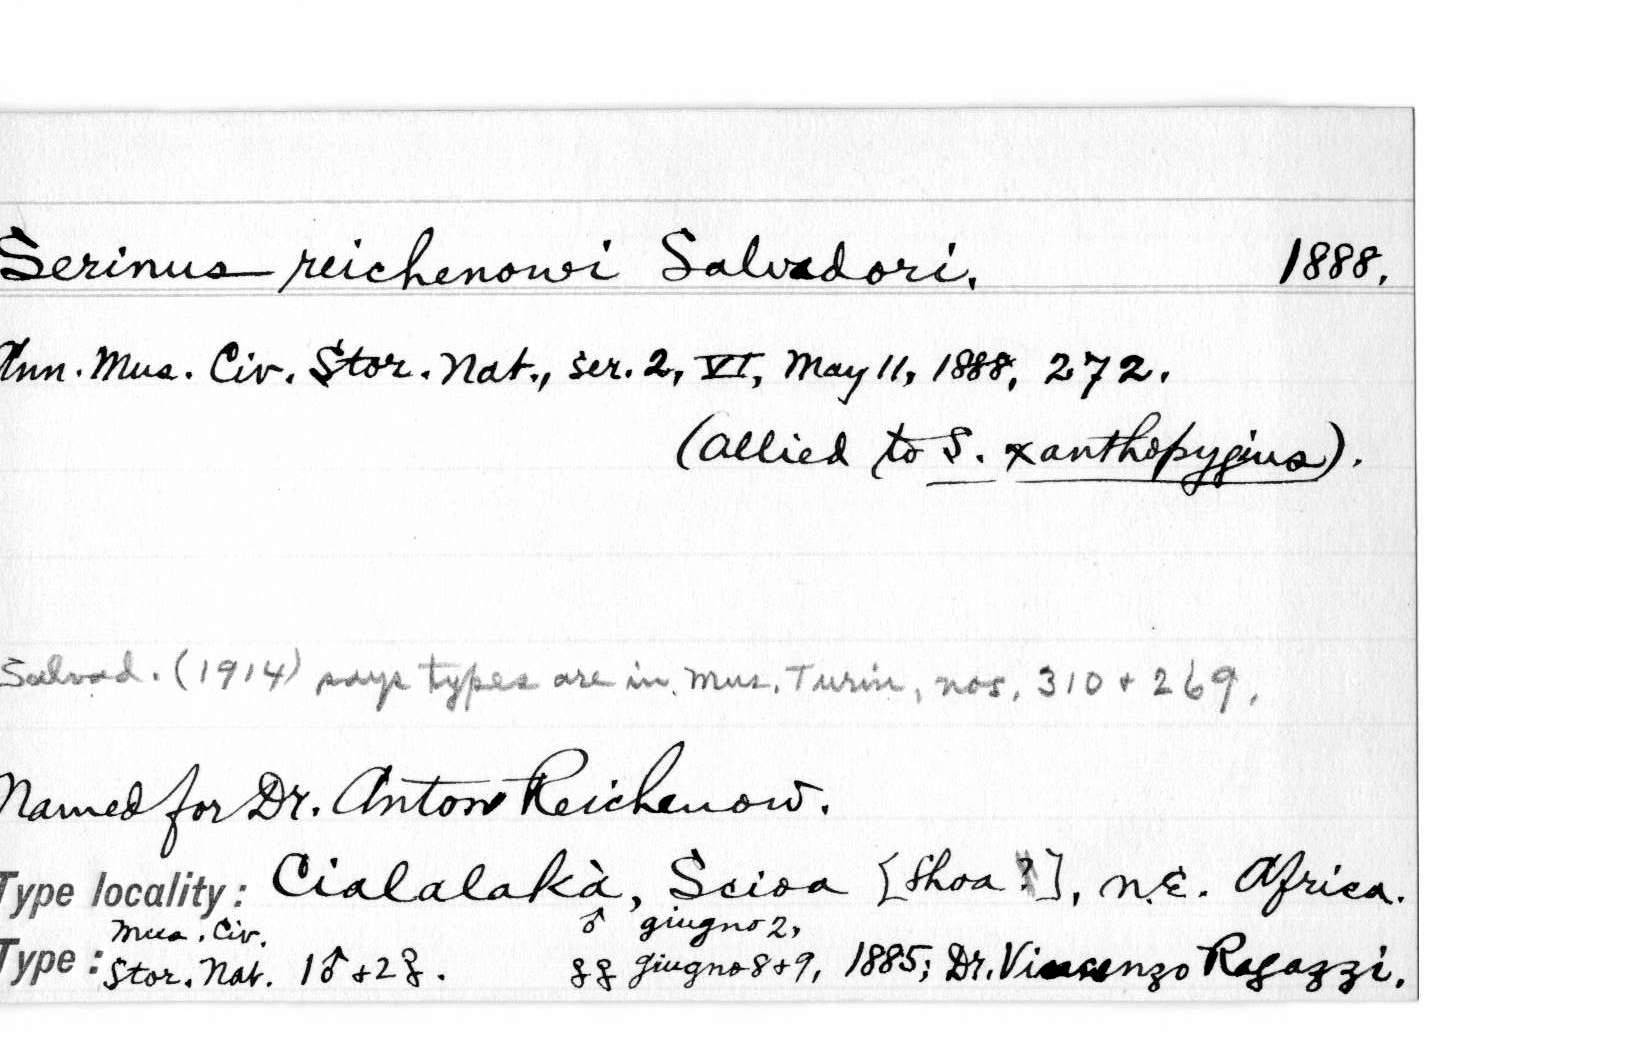 Serinus reichenowi Salvadori. 1888.
Ann. Mus. Civ. Stor. Nat., ser. 2, VI, May 11, 1888, 272.
(allied to S. xanthopygius).
Salvad. (1914) says types are in Mus. Turin, nos. 310 + 269.
Named for Dr. Anton Reichenow.
Type locality: Cialalakà, Scioa [Shoa ?], N.E. Africa.
Mus. Civ. ♂ giugno 2,
Type: Stor. Nat. 1♂ + 2♀. ♀♀ giugno 8+9, 1885; Dr. Vincenzo Ragazzi.